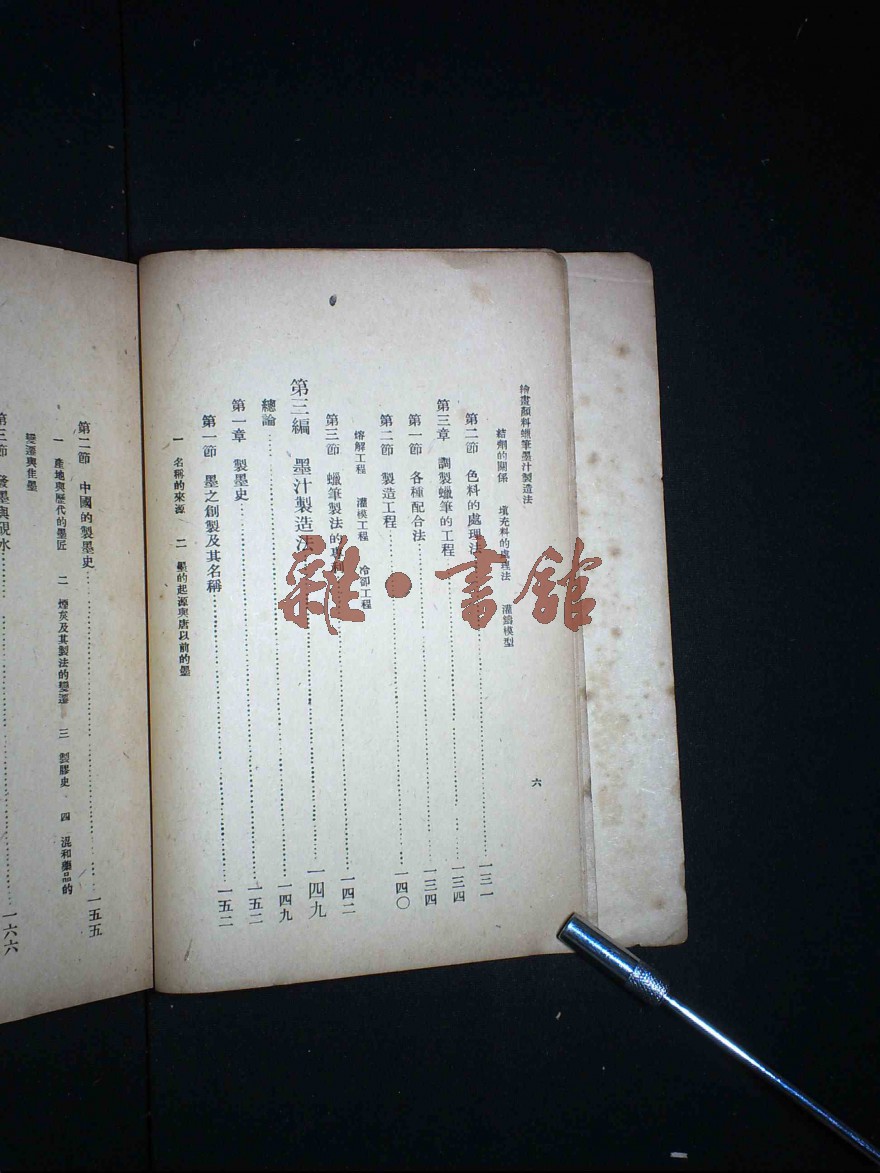 繪畫顏料蠟筆墨汁製造法
六
結劑的關係 填充料的處理法 灌鑄模型
第二節 色料的處理法……一三一
第三章 調製蠟筆的工程……一三四
第一節 各種配合法……一三四
第二節 製造工程……一四〇
熔解工程 灌模工程 冷卻工程
第三節 蠟筆製法的專利……一四二
第三編 墨汁製造法……一四九
總論……一四九
第一章 製墨史……一五二
第一節 墨之創製及其名稱……一五二
一 名稱的來源 二 墨的起源與唐以前的墨
第二節 中國的製墨史……一五五
一 產地與歷代的墨匠 二 煙炱及其製法的變遷 三 製膠史 四 混和藥品的
變遷與佳墨
第三節 發墨與硯水……一六六
雜·書館